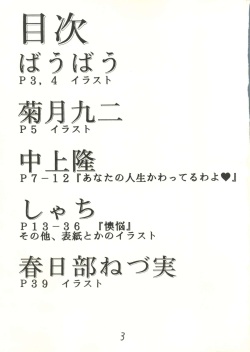 目次
ばうばう
P3，4　イラスト
菊月九二
P5　イラスト
中上隆
P7－12『あなたの人生かわってるわよ♥』
しゃち
P13－36　『懊悩』
その他、表紙とかのイラスト
春日部ねづ実
P39　イラスト
3